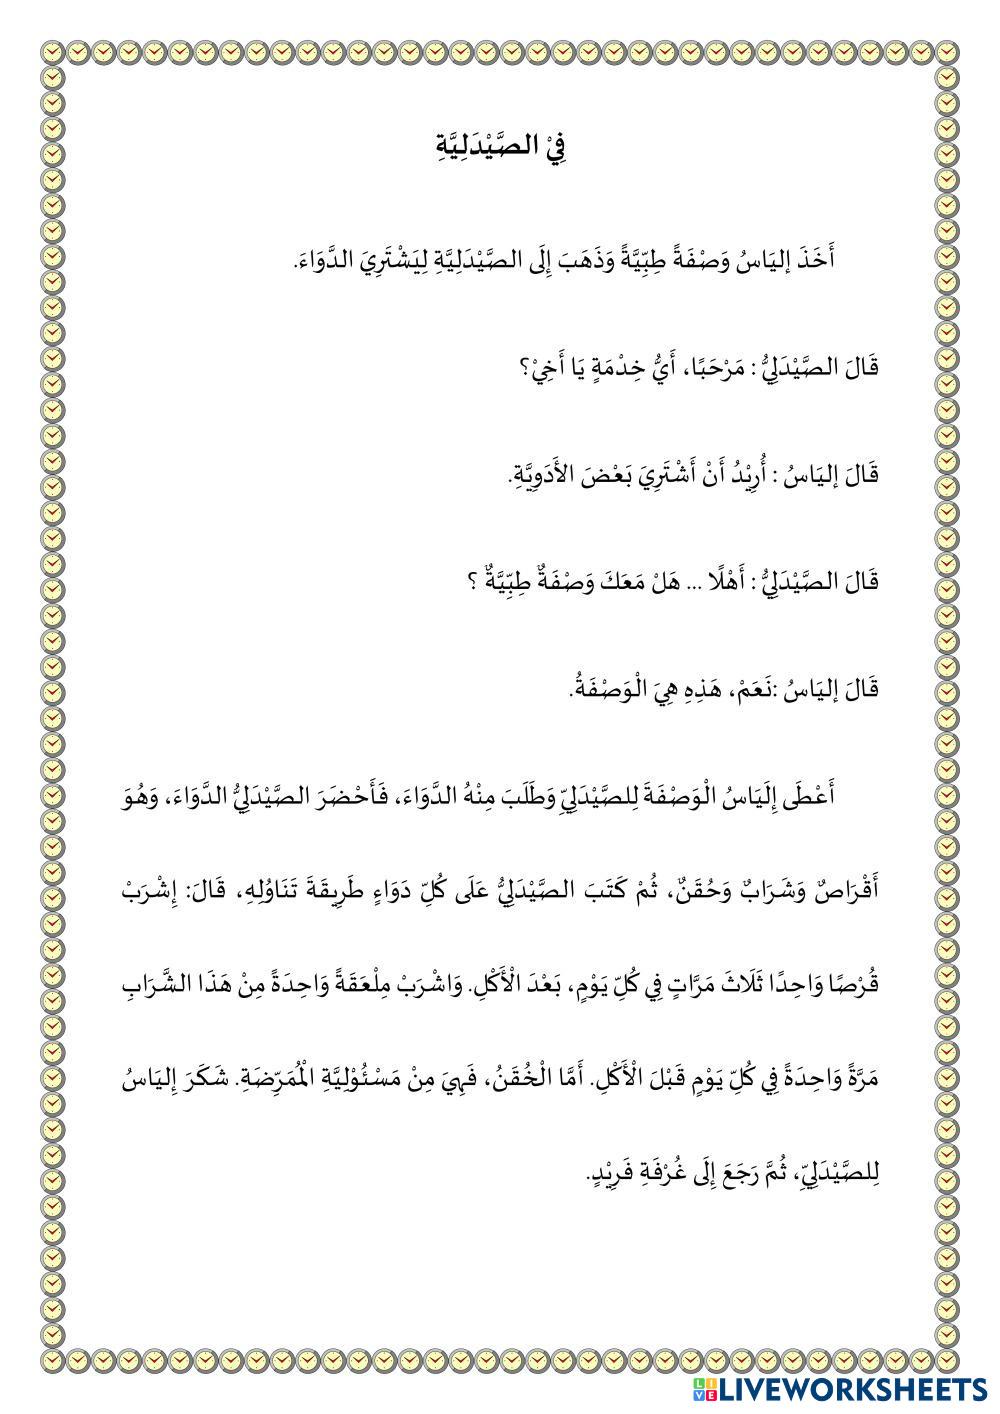 فِيْ الصَّيْدَلِيَّةِ
أَخَذَ إليَاسُ وَصْفَةً طِبِّيَّةً وَذَهَبَ إِلَى الصَّيْدَلِيَّةِ لِيَشْتَرِيَ الدَّوَاءَ.
قَالَ الصَّيْدَلِيُّ : مَرْحَبًا، أَيُّ خِدْمَةٍ يَا أَخِيْ؟
قَالَ إليَاسُ : أُرِيْدُ أَنْ أَشْتَرِيَ بَعْضَ الأَدَوِيَّةِ.
قَالَ الصَّيْدَلِيُّ : أَهْلًا ... هَلْ مَعَكَ وَصْفَةٌ طِبِّيَّةٌ ؟
قَالَ إليَاسُ :نَعَمْ، هَذِهِ هِيَ الْوَصْفَةُ.
أَعْطَى إِلَيَاسُ الْوَصْفَةَ لِلصَّيْدَلِيِّ وَطَلَبَ مِنْهُ الدَّوَاءَ، فَأَحْضَرَ الصَّيْدَلِيُّ الدَّوَاءَ، وَهُوَ
أَقْرَاصٌ وَشَرَابٌ وَحُقَنٌ، ثُمْ كَتَبَ الصَّيْدَلِيُّ عَلَى كُلِّ دَوَاءٍ طَرِيقَةَ تَنَاوُلِهِ، قَالَ: إِشْرَبْ
قُرْصًا وَاحِدًا ثَلَاثَ مَرَّاتٍ فِي كُلِّ يَوْمٍ، بَعْدَ الْأَكْلِ. وَاشْرَبْ مِلْعَقَةً وَاحِدَةً مِنْ هَذَا الشَّرَابِ
مَرَّةً وَاحِدَةً فِي كُلِّ يَوْمٍ قَبْلَ الْأَكْلِ. أَمَّا الْحُقَنُ، فَهِيَ مِنْ مَسْئُوْلِيَّةِ الْمُمَرِّضَةِ. شَكَرَ إِليَاسُ
لِلصَّيْدَلِيِّ، ثُمَّ رَجَعَ إِلَى غُرْفَةِ فَرِيْدٍ.
LIVEWORKSHEETS